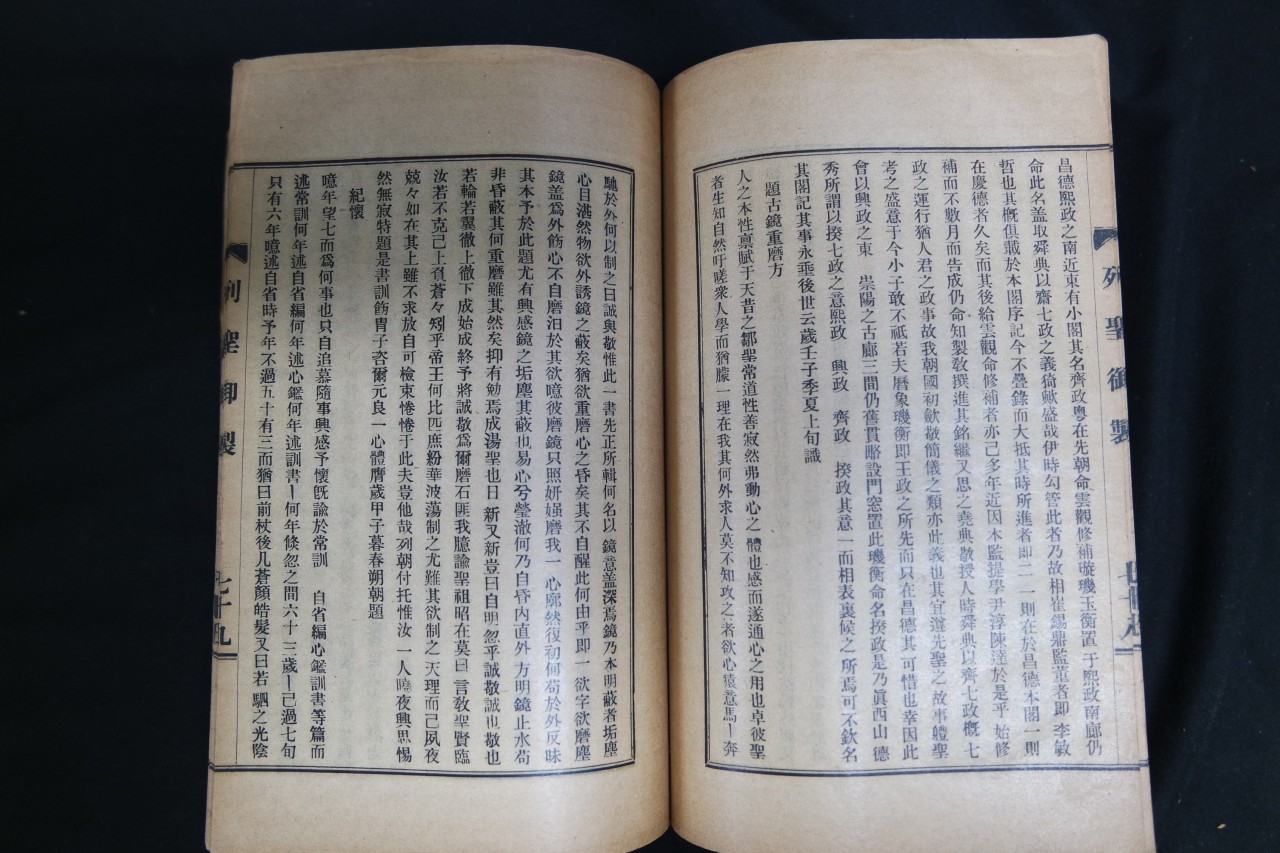 昌德熙政之南近東有小閣其名齊政粵在先朝命雲觀修補璇璣玉衡置于熙政南廊仍
命此名盖取舜典以齋七政之義猗歟盛哉伊時勾管此者乃故相崔錫鼎監董者即李敏
哲也其槪俱載於本閣序記今不疊錄而大抵其時所進者即二一則在於昌德本閣一則
在慶德者久矣而其後給雲觀命修補者亦己多年近因本監提學尹淳陳達於是乎始修
補而不數月而告成仍命知製敎撰進其銘繼又思之堯典敬授人時舜典以齊七政概七
政之運行猶人君之政事故我朝國初歛敬簡儀之類亦此義也其宜遵先聖之故事軆聖
考之盛意于今小子敢不祗若夫曆象璣衡即王政之所先而只在昌德其可惜也幸因此
會以興政之東 崇陽之古廊三間仍舊貫略設門窓置此璣衡命名揆政是乃眞西山德
秀所謂以揆七政之意熙政 興政 齊政 揆政其意一而相表裏候之所焉可不欽名
其閣記其事永垂後世云歲壬子季夏上旬識
題古鏡重磨方
人之本性禀賦于天昔之鄒聖常道性善寂然弗動心之軆也感而遂通心之用也卓彼聖
者生知自然吁嗟衆人學而猶朦一理在我其何外求人莫不知攻之者欲心猿意馬ㅣ奔
列聖御製
馳於外何以制之曰誠與敬惟此一書先正所輯何名以鏡意盖深焉鏡乃本明蔽者垢塵
心目湛然物欲外誘鏡之蔽矣猶欲重磨心之昏矣其不自醒此何由乎即一欲字欲磨塵
鏡盖爲外飭心不自磨汩於其欲噫彼磨鏡只照妍媸磨我一心廓然復初何苟於外反昧
其本予於此題尤有興感鏡之垢塵其蔽也易心兮瑩澈何乃自昏內直外方明鏡止水苟
非昏蔽其何重磨雖其然矣抑有勉焉成湯聖也日新又新豈曰自明忽乎誠敬誠也敬也
若輪若翼徹上徹下成始成終予將誠敬爲爾磨石匪我臆論聖祖昭在莫曰言敎聖賢臨
汝若不克己上負蒼々矧乎帝王何比匹庶紛華波蕩制之尤難其欲制之天理而己夙夜
兢々如在其上雖不求放自可檢束惓惓于此夫豈他哉列朝付托惟汝一人曉夜興思惕
然無寂特題是書訓飭胄子咨爾元良一心體膺歲甲子暮春朔朝題
紀懷
噫年望七而爲何事也只自追慕隨事興感予懷旣諭於常訓 自省編心鑑訓書等篇而
述常訓何年述自省編何年述心鑑何年述訓書ㅣ何年倏忽之間六十三歲ㅣ己過七旬
只有六年噫述自省時予年不過五十有三而猶曰前杖後几蒼顏皓髮又曰若駟之光陰
列聖御製 七十九